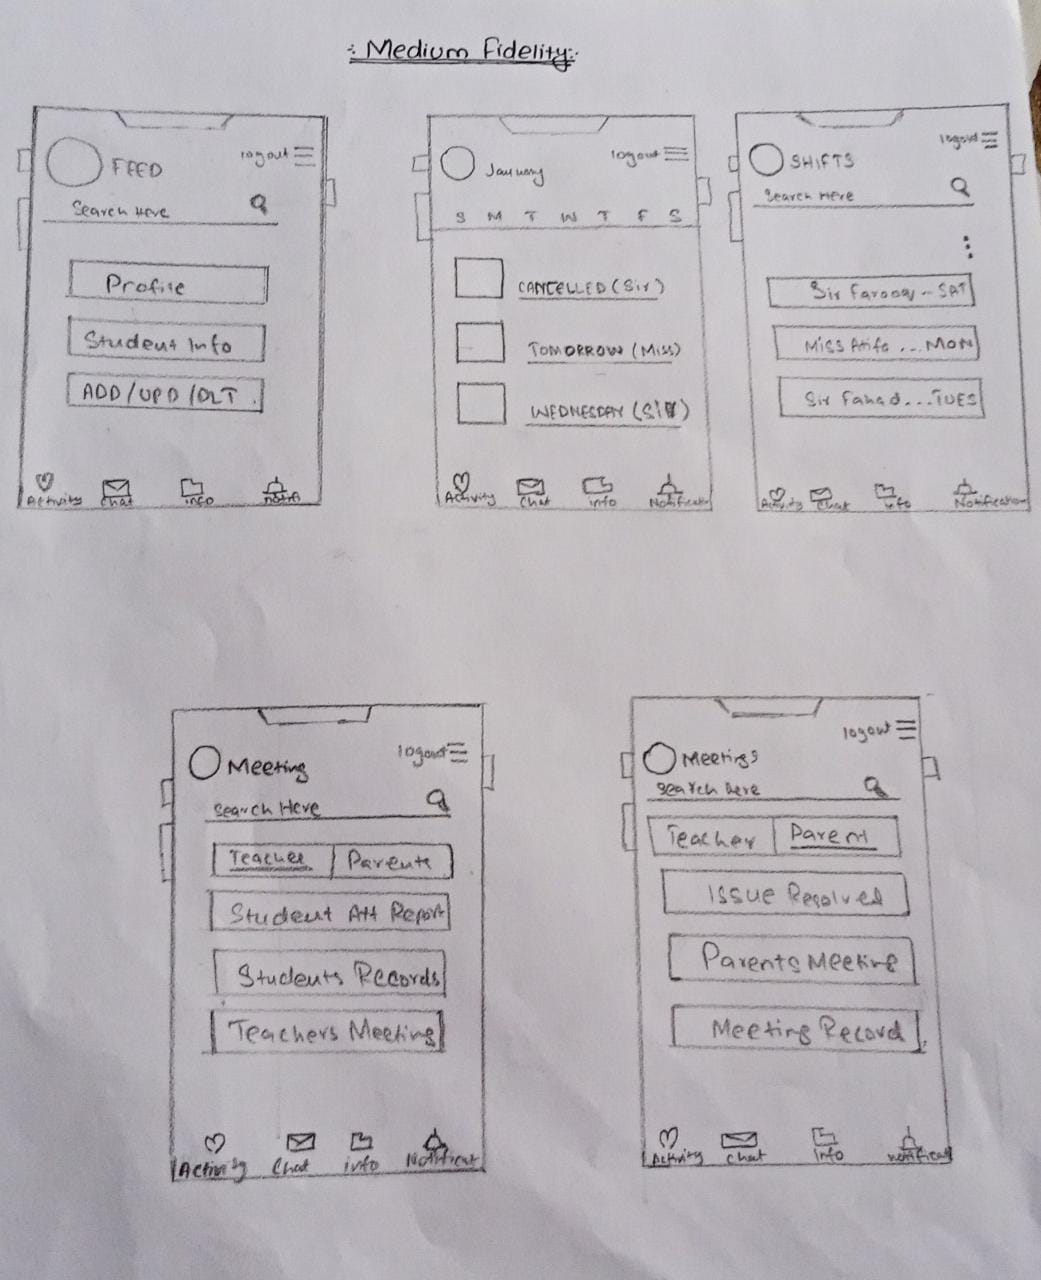 : Medium Fidelity :
FEED
logout
Search Here
Profile
Student Info
ADD/UPD/DLT
Activity Chat info notifi
January
logout
S M T W T F S
CANCELLED (Sir)
TOMORROW (Miss)
WEDNESDAY (Sir)
Activity Chat info Notificati
SHIFTS
logout
Search Here
Sir Farooq -- SAT
Miss Atifa ... MON
Sir Fahad ... TUES
Activity Chat info Notification
Meeting
logout
Search Here
Teacher Parents
Student Att Report
Students Records
Teachers Meeting
Activity Chat info Notificat
Meetings
logout
Search here
Teacher Parent
Issue Resolved
Parents Meeting
Meeting Record
Activity Chat Info notificat